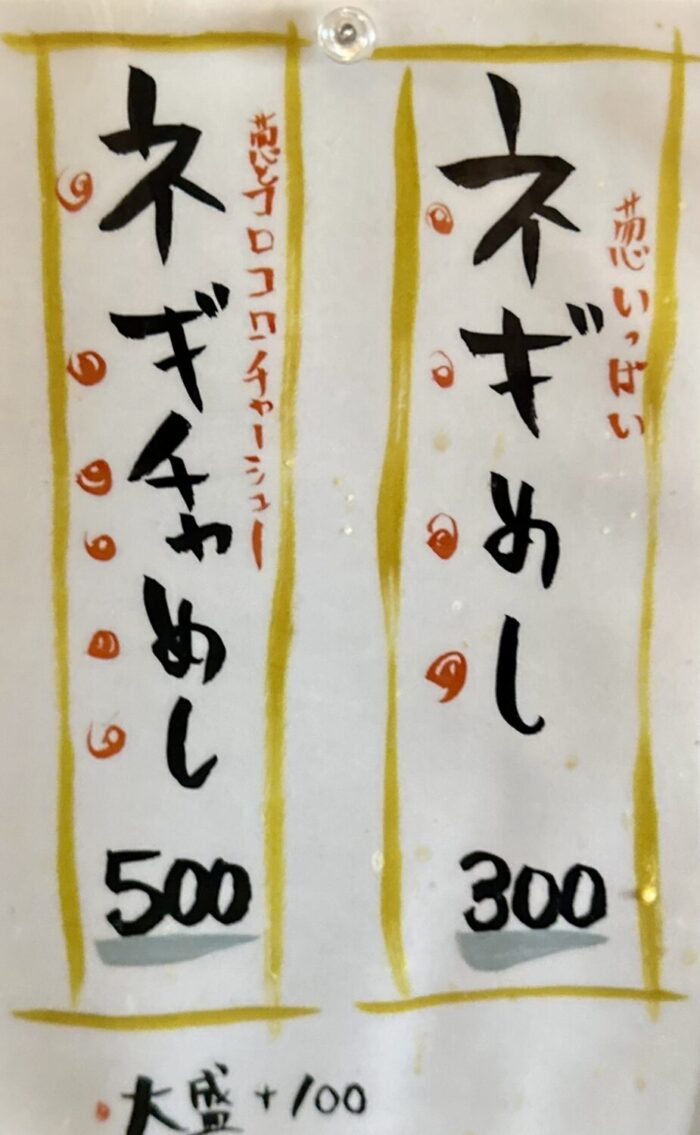 葱いっぱい
ネギめし
300
葱とコロコロチャーシュー
ネギチャめし
500
大盛+100